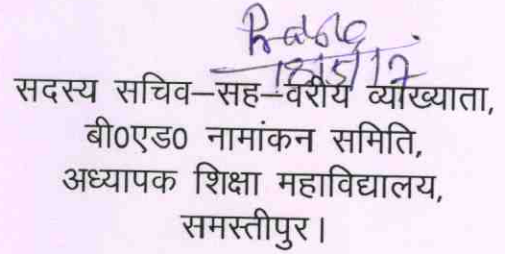 18/5/17
सदस्य सचिव–सह–वरीय व्याख्याता,
बी०एड० नामांकन समिति,
अध्यापक शिक्षा महाविद्यालय,
समस्तीपुर।